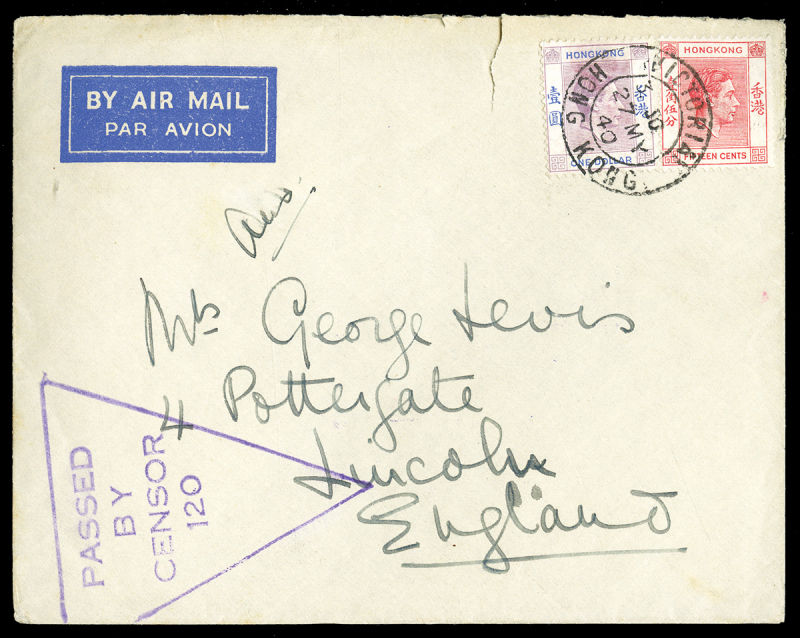 BY AIR MAIL
PAR AVION
HONGKONG
壹圓
香港
ONE DOLLAR
HONGKONG
香港
FIFTEEN CENTS
VICTORIA
HONG KONG
27 MY
40
Mrs George Levis
4 Pottergate
Lincoln
England
PASSED
BY
CENSOR
120